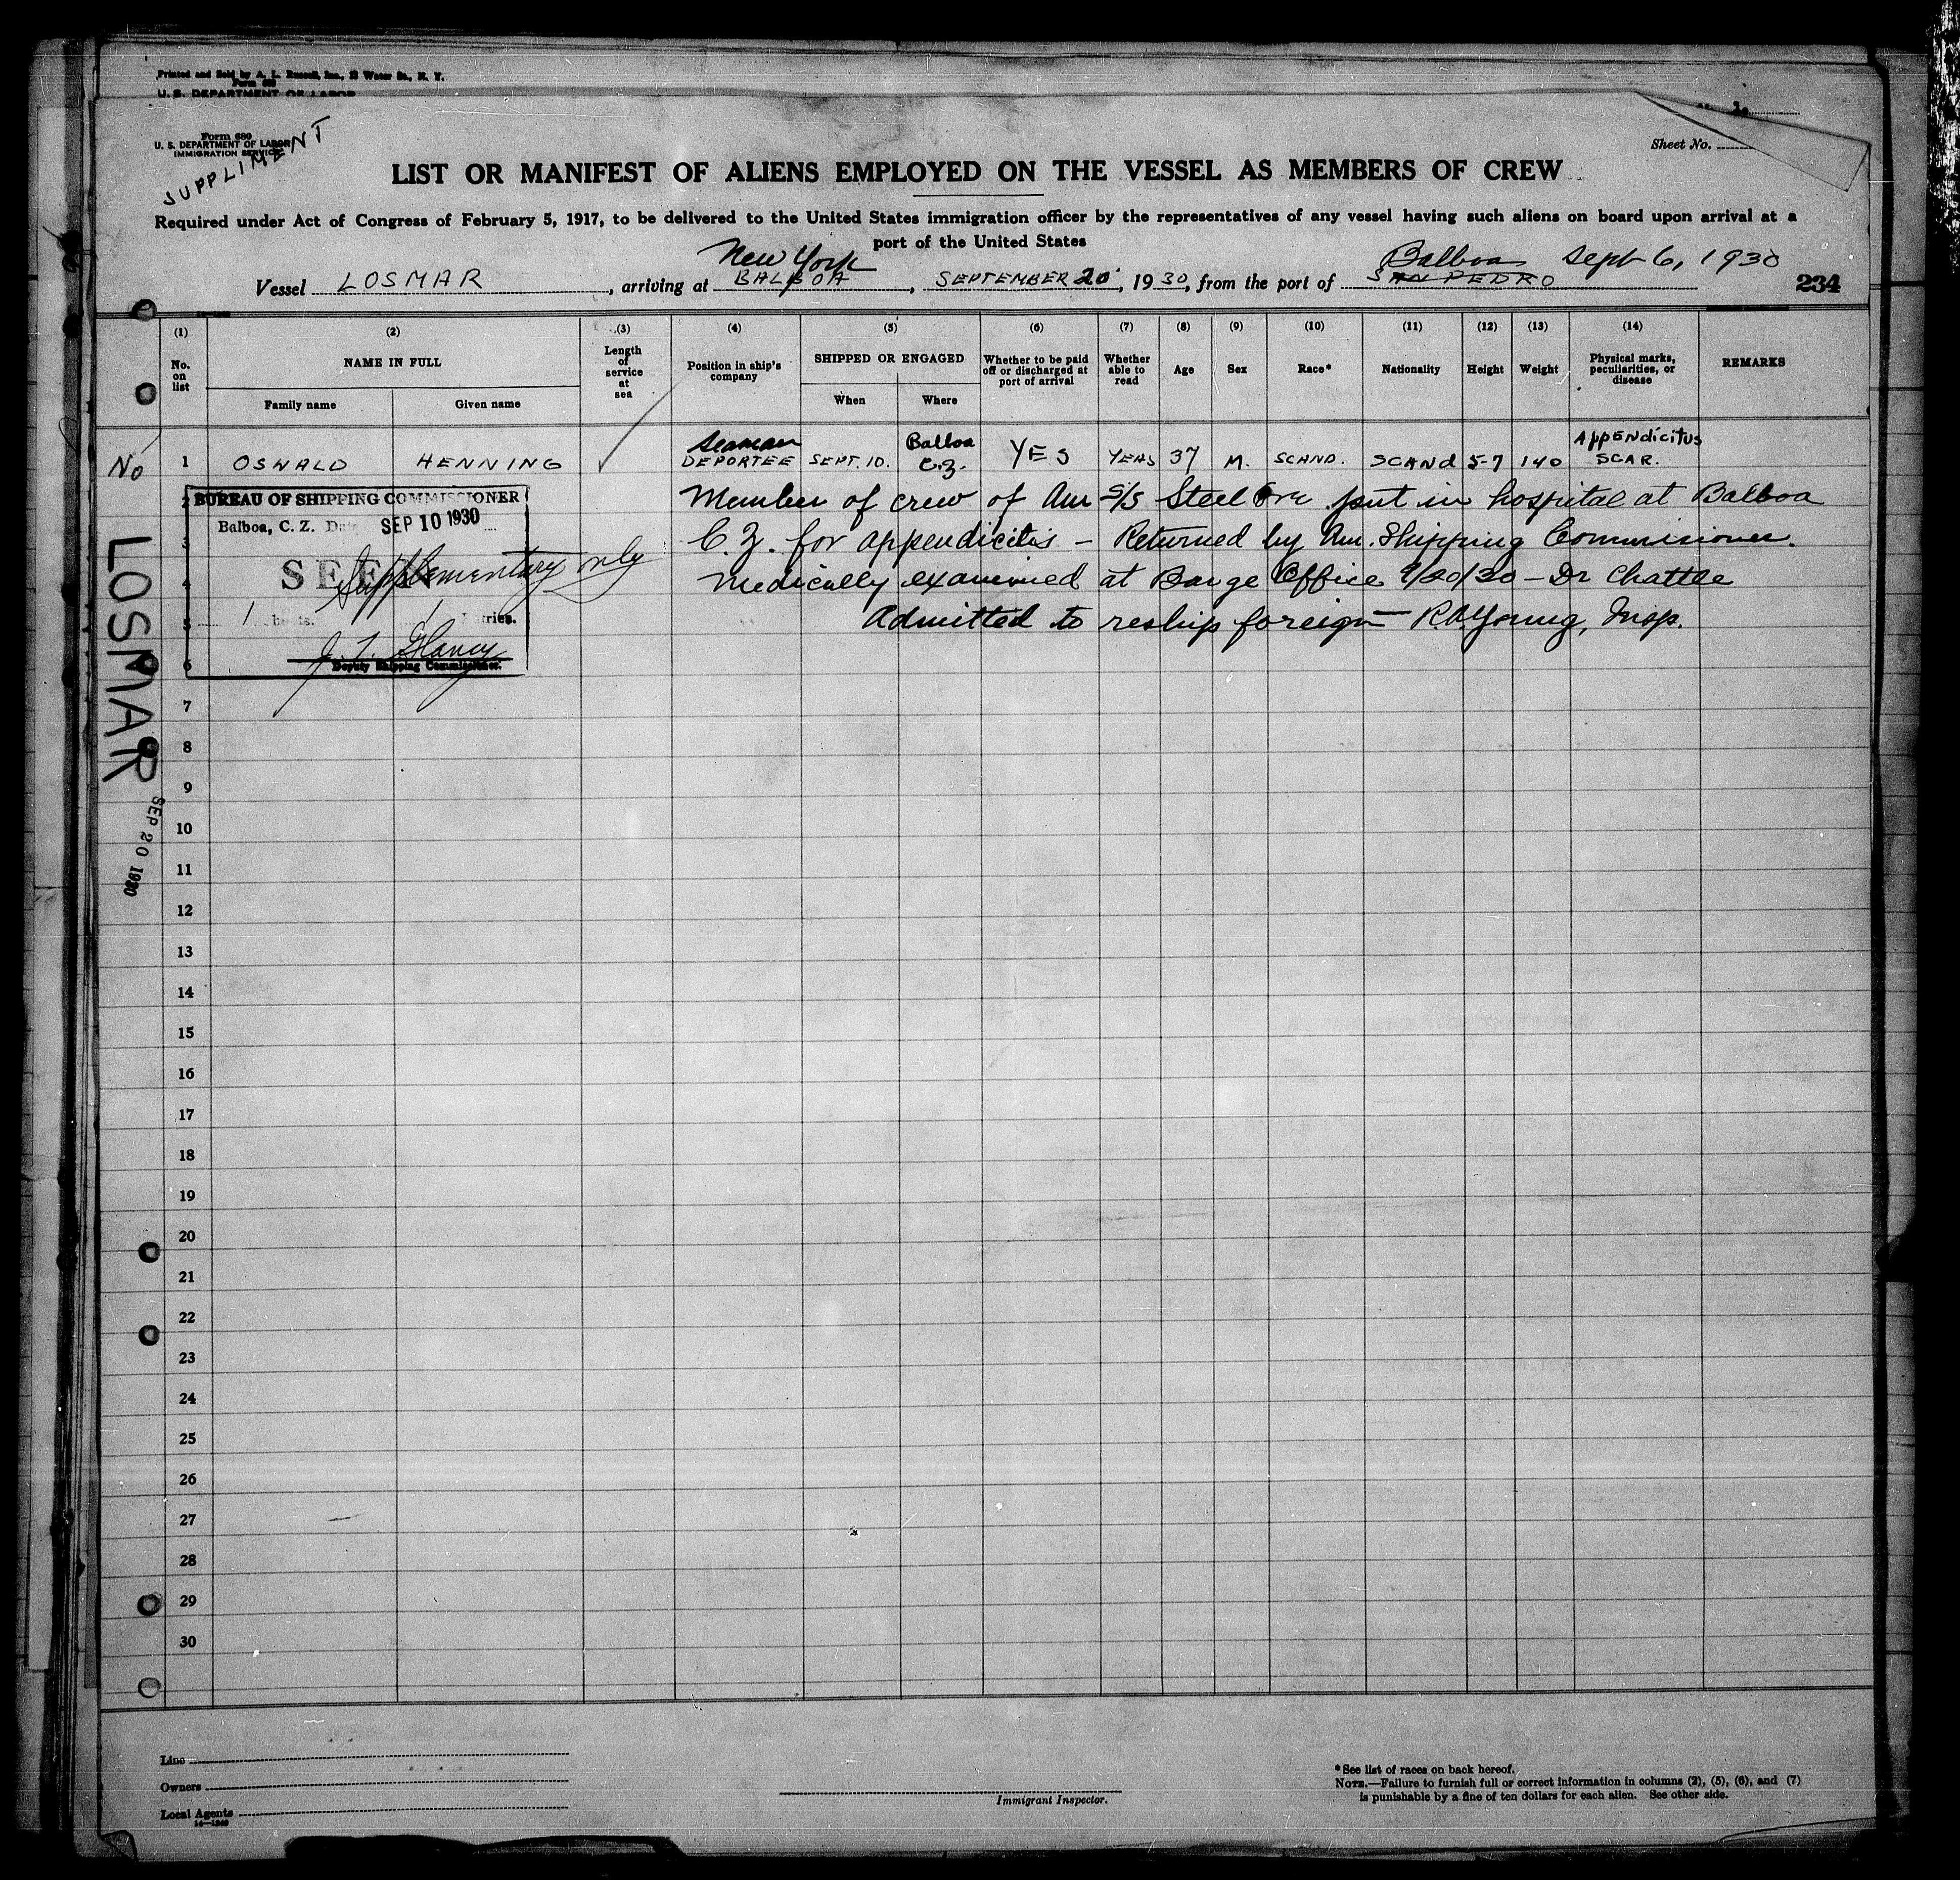 Printed and Sold by A. L. Russell, Inc., 12 Water St., N. Y.
Form 680
U. S. DEPARTMENT OF LABOR
Form 680
U. S. DEPARTMENT OF LABOR
IMMIGRATION SERVICE
SUPPLIMENT
Sheet No.
LIST OR MANIFEST OF ALIENS EMPLOYED ON THE VESSEL AS MEMBERS OF CREW
Required under Act of Congress of February 5, 1917, to be delivered to the United States immigration officer by the representatives of any vessel having such aliens on board upon arrival at a
port of the United States
New York Balboa Sept 6, 1930
Vessel LOSMAR, arriving at BALBOA, SEPTEMBER 20, 1930, from the port of SAN PEDRO 234
(1) (2) (3) (4) (5) (6) (7) (8) (9) (10) (11) (12) (13) (14)
No. on list
NAME IN FULL
Family name Given name
Length of service at sea
Position in ship's company
SHIPPED OR ENGAGED
When Where
Whether to be paid off or discharged at port of arrival
Whether able to read
Age
Sex
Race*
Nationality
Height
Weight
Physical marks, peculiarities, or disease
REMARKS
Seaman Balboa Appendicitus
No 1 OSWALD HENNING DEPORTEE SEPT. 10. C.Z. YES YEAS 37 M. SCAND. SCANd 5-7 140 SCAR.
2 Member of crew of Am S/S Steel Ore put in hospital at Balboa
3 C.Z. for appendicitis - Returned by Am. Shipping Commissioner.
4 Medically examined at Barge Office 9/20/30 - Dr Chattle
5 Admitted to reship foreign - R.A. Young, Insp.
BUREAU OF SHIPPING COMMISSIONER
Balboa, C. Z. Date SEP 10 1930
SEEN
Supplementary only
1
J. T. Glancy
Deputy Shipping Commissioner.
LOSMAR
SEP 20 1930
6
7
8
9
10
11
12
13
14
15
16
17
18
19
20
21
22
23
24
25
26
27
28
29
30
Line
Owners
Local Agents
14—1240
Immigrant Inspector.
*See list of races on back hereof.
NOTE.—Failure to furnish full or correct information in columns (2), (5), (6), and (7)
is punishable by a fine of ten dollars for each alien. See other side.